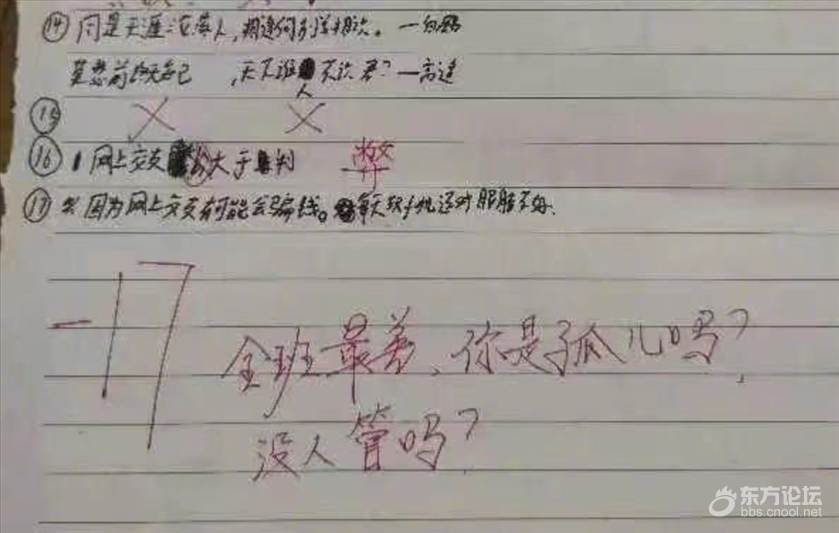 ⑭ 同是天涯沦落人，相逢何必曾相识。—白居易
莫愁前路无知己，天下谁人不识君？—高适
⑮ × ×
⑯ 网上交友 大于 判 弊
⑰ 因为网上交友有可能会骗钱。每天玩手机还对眼睛不好.
-17
全班最差、你是孤儿吗？
没人管吗？
东方论坛
bbs.cnool.net